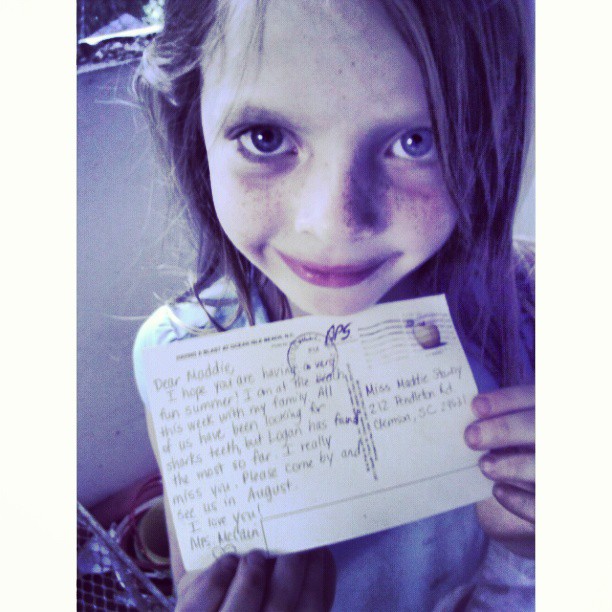 OCEAN ISLE BEACH, N.C.
Dear Maddie,
I hope you are having a very
fun summer! I am at the beach
this week with my family. All
of us have been looking for
sharks teeth, but Logan has found
the most so far. I really
miss you. Please come by and
see us in August.
I love you!
Mrs.
APS
Miss Maddie
212 Pendleton Rd.
Clemson, SC